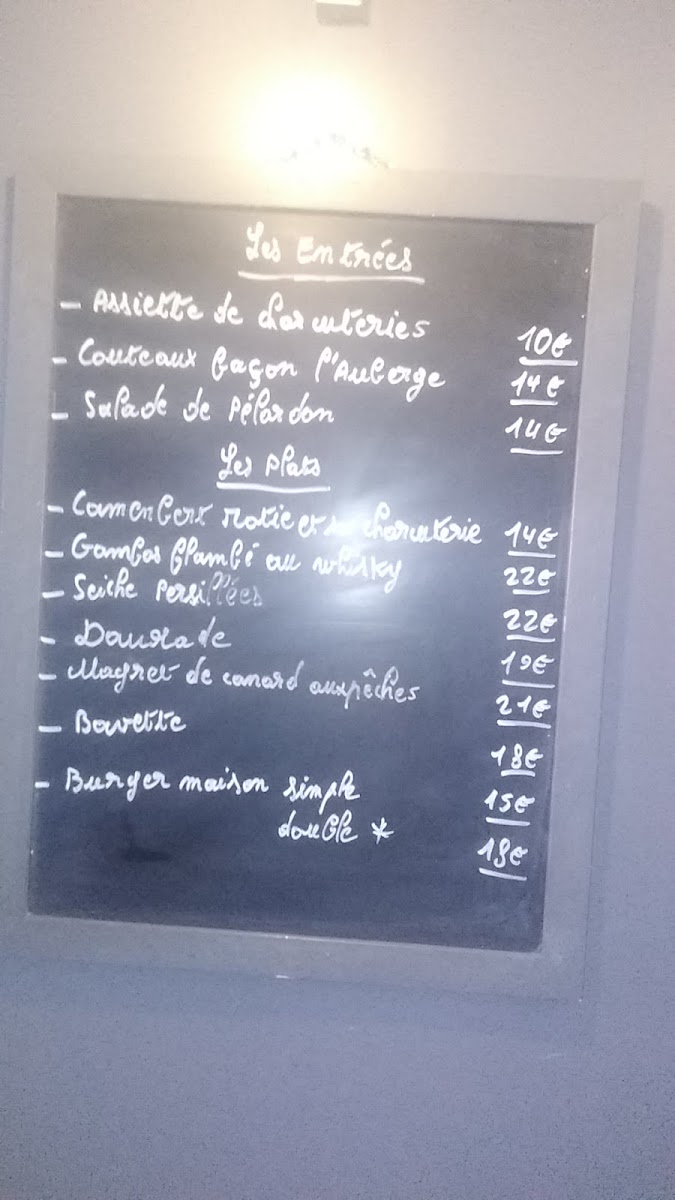 Les Entrées
- Assiette de charcuteries 10€
- Couteaux façon l'Auberge 14€
- Salade de Pélardon 14€
Les plats
- Camembert rotie et sa charcuterie 14€
- Gambas flambé au whisky 22€
- Seiche Persillées 22€
- Daurade 19€
- Magret de canard aux pêches 21€
- Bavette 18€
- Burger maison simple 15€
double * 18€